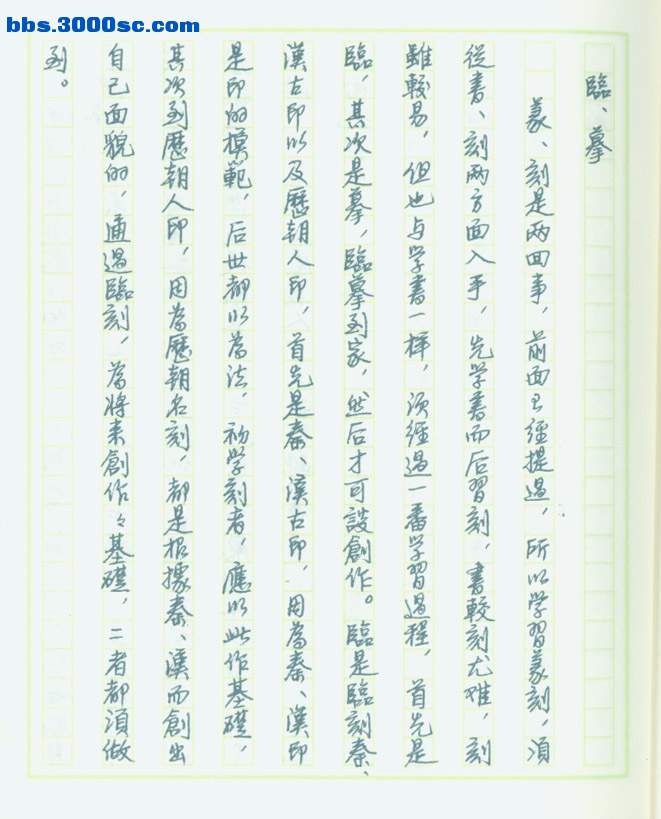 bbs.3000sc.com
臨、摹
篆、刻是两回事，前面已經提過，所以学習篆刻，須
從書、刻两方面入手，先学書而后習刻，書較刻尤难，刻
雖較易，但也与学書一樣，须經過一番学習過程，首先是
臨，其次是摹，臨摹到家，然后才可談創作。臨是臨刻秦、
漢古印以及歷朝人印，首先是秦、漢古印，因為秦、漢印
是印的模範，后世都以為法，初学刻者，應以此作基礎，
其次到歷朝人印，因為歷朝名刻，都是根據秦、漢而創出
自己面貌的，通過臨刻，為將来創作々基礎，二者都須做
到。